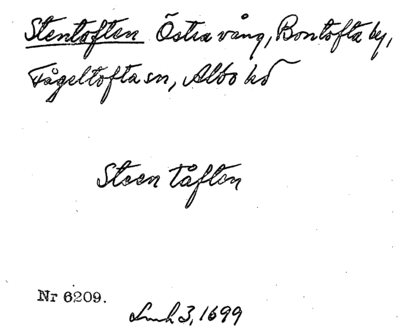 Stentoften Östra vång, Bontofta by,
Fågeltofta sn, Albo hd
Steen tåften
Nr 6209.
Lmh 3, 1699